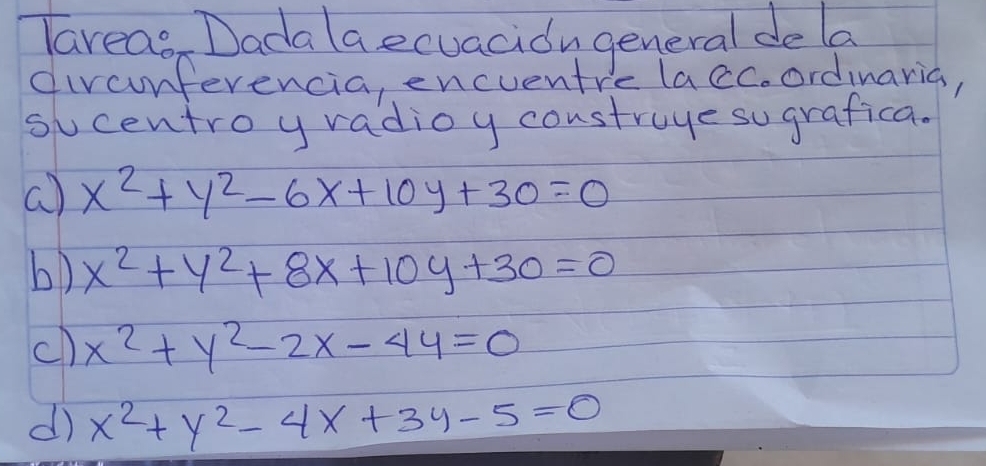 Tarea:- Dada la ecuación general de la
circunferencia, encuentre la ec. ordinaria,
su centro y radio y construye su grafica.
a) x²+y²-6x+10y+30=0
b) x²+y²+8x+10y+30=0
c) x²+y²-2x-4y=0
d) x²+y²-4x+3y-5=0